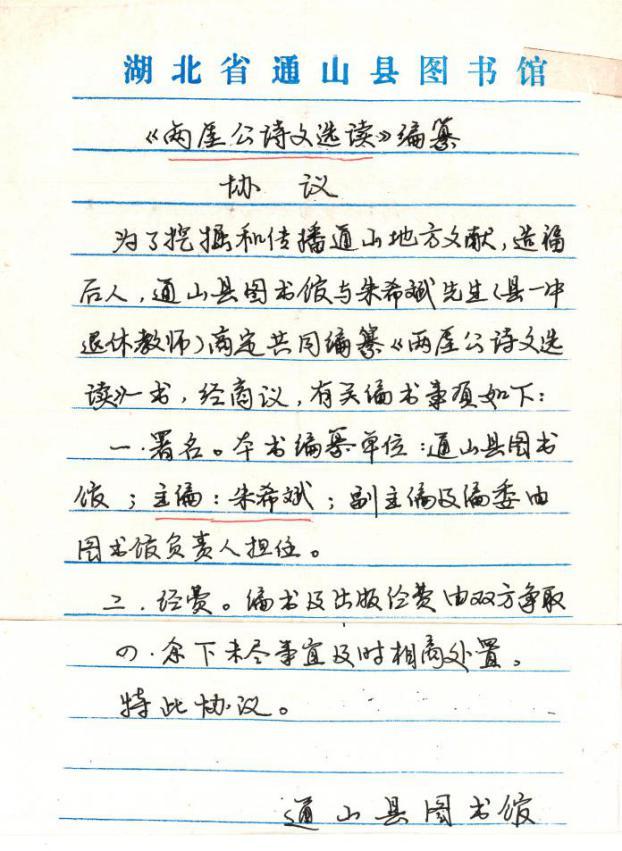 湖北省通山县图书馆
《两厓公诗文选读》编纂
协 议
为了挖掘和传播通山地方文献，造福
后人，通山县图书馆与朱希斌先生（县一中
退休教师）商定共同编纂《两厓公诗文选
读》一书，经商议，有关编书事项如下：
一．署名。本书编纂单位：通山县图书
馆；主编：朱希斌；副主编及编委由
图书馆负责人担任。
二．经费。编书及出版经费由双方争取
四．余下未尽事宜及时相商处置。
特此协议。
通山县图书馆